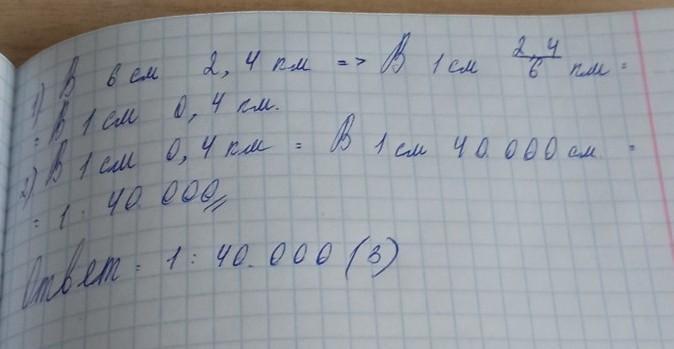 1) В 6 см 2,4 км => В 1 см 2,4/6 км =
= В 1 см 0,4 км.
2) В 1 см 0,4 км = В 1 см 40.000 см =
= 1 : 40.000
Ответ = 1 : 40.000 (3)